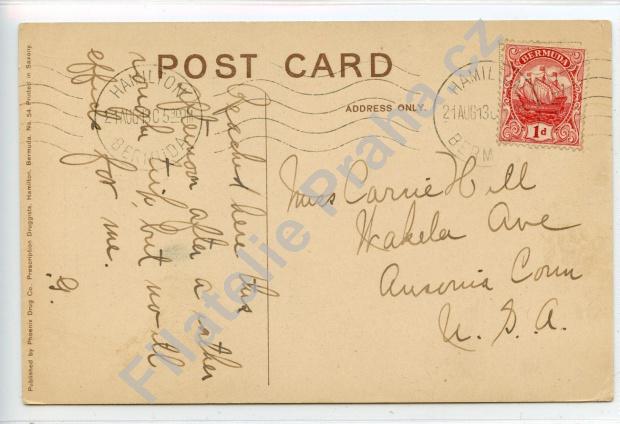 POST CARD
ADDRESS ONLY.
Reached here this
afternoon after a rather
rough trip, but no ill
effects for me.
G.
Miss Carrie Hill
Wakelee Ave
Ansonia Conn
U. S. A.
HAMILTON
21 AUG 13
BERMUDA
HAMIL
21 AUG 13
BERM
BERMUDA
1d
Published by Phoenix Drug Co. Prescription Druggists, Hamilton, Bermuda. No. 54 Printed in Saxony.
Filatelie Praha.cz